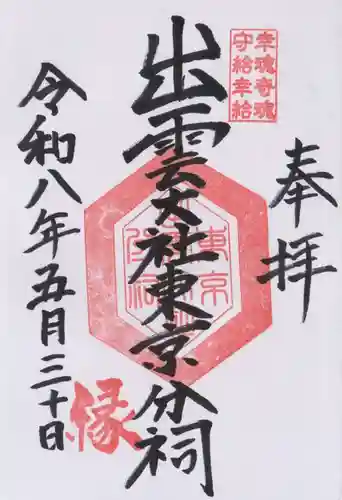 奉拝
幸魂奇魂
守給幸給
出雲大社東京分祠
縁
令和八年五月三十日